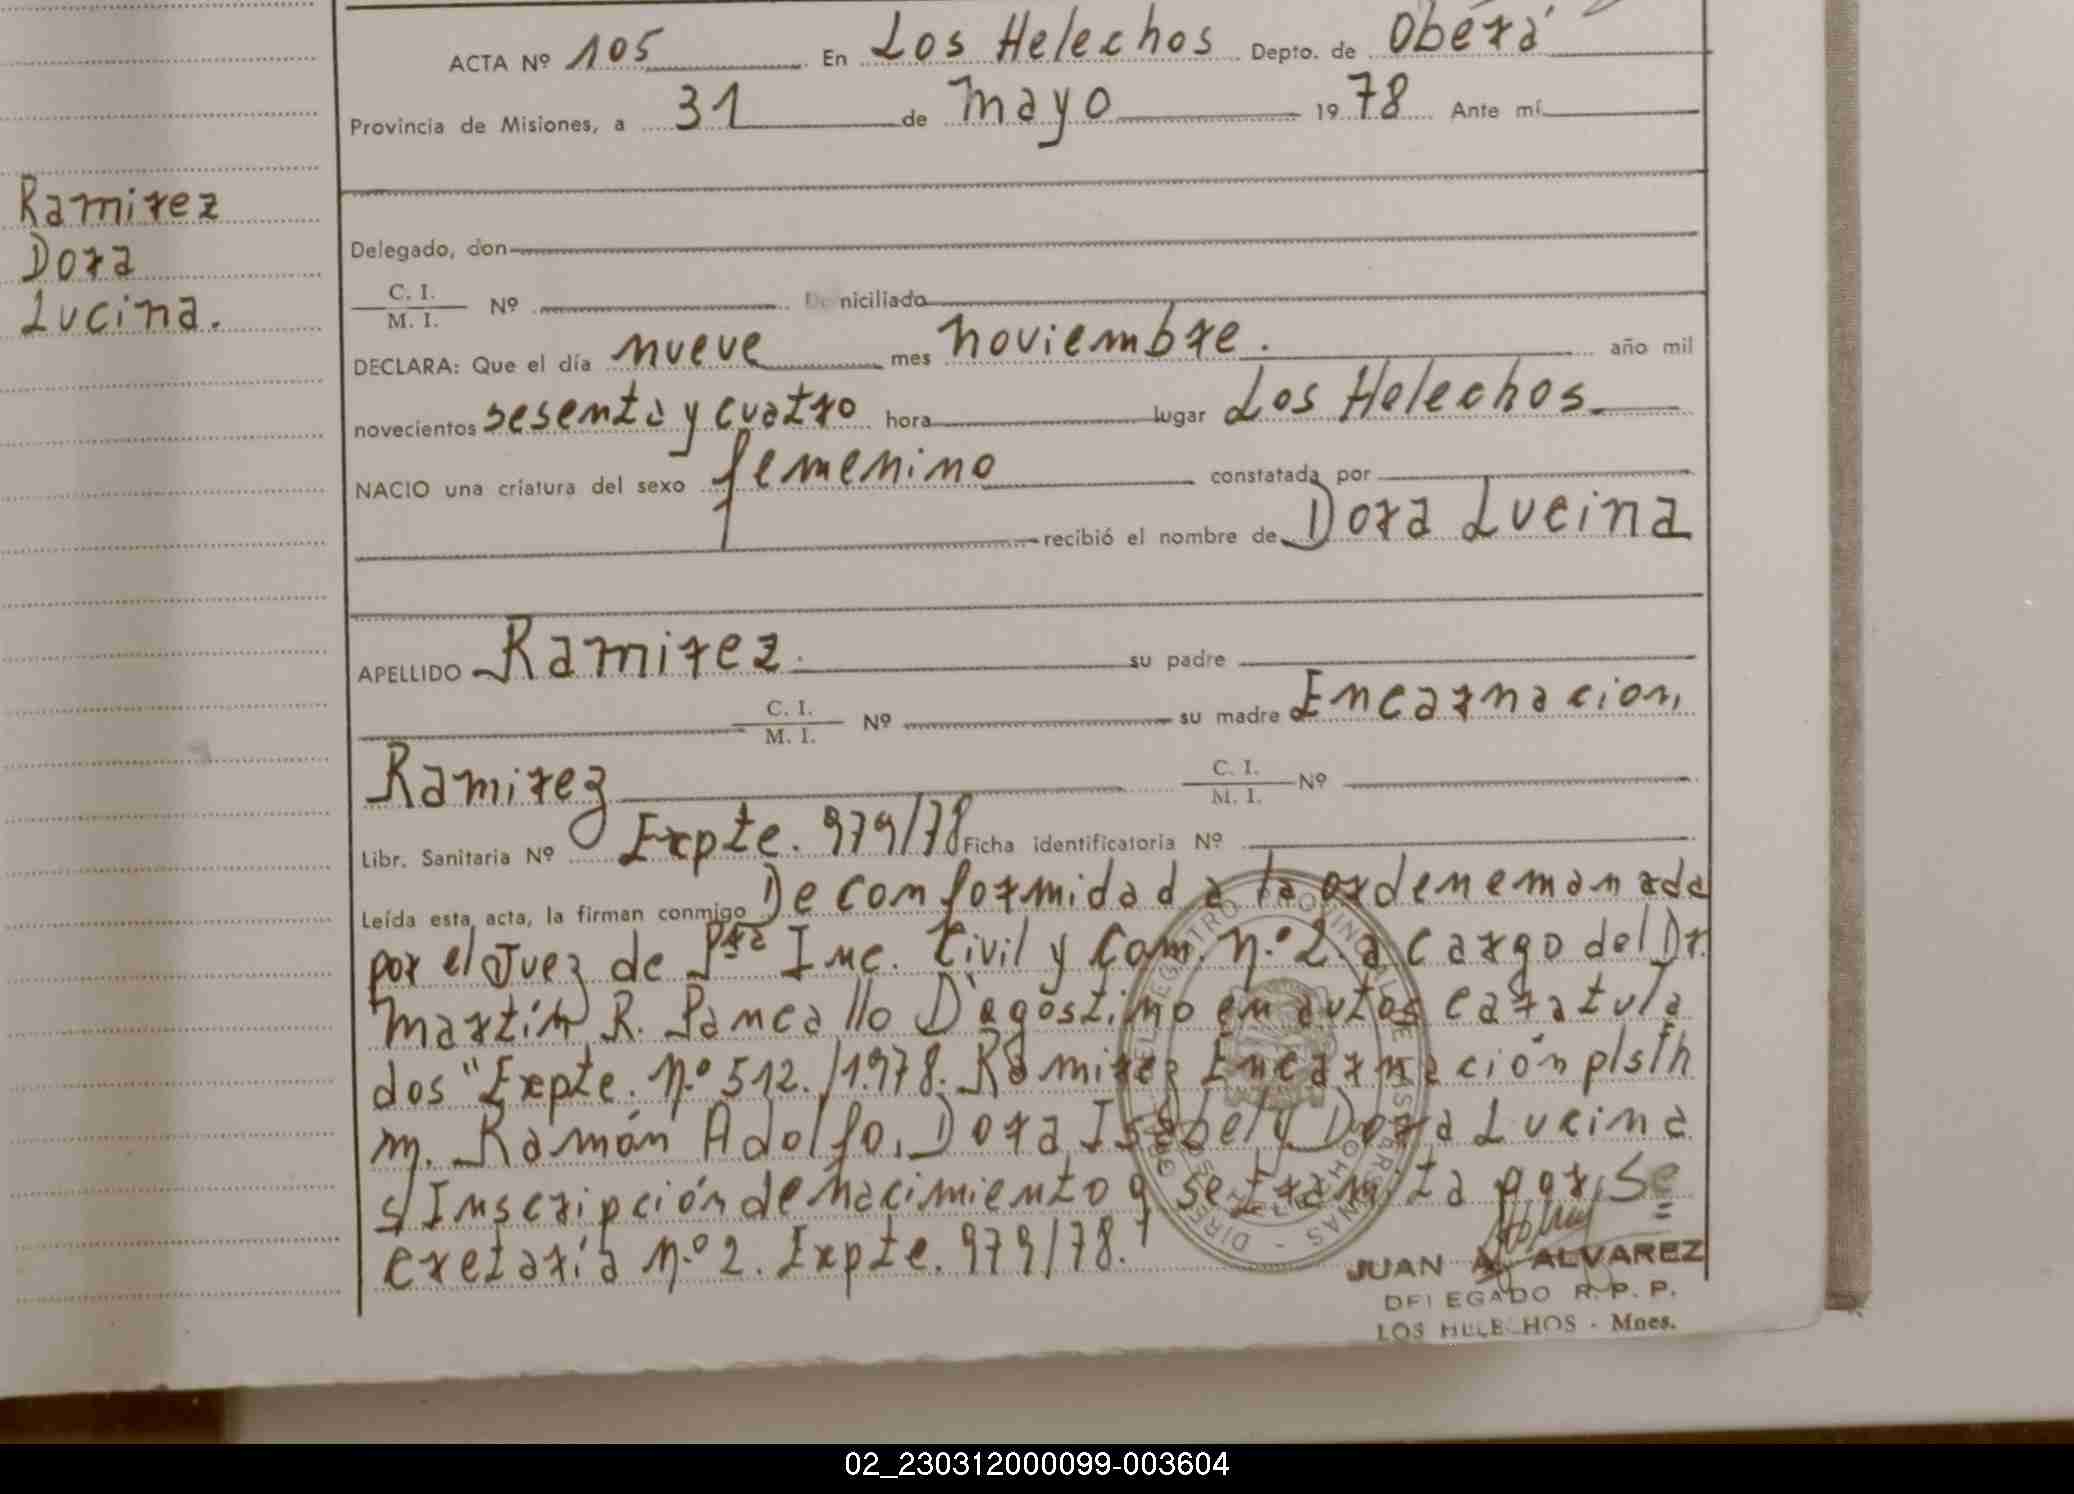 ACTA Nº 105 En Los Helechos Depto. de Oberá
Provincia de Misiones, a 31 de Mayo 1978 Ante mí
Ramirez
Dora
Lucina.
Delegado, don
C. I.
M. I. Nº Domiciliado
DECLARA: Que el día nueve mes noviembre. año mil
novecientos sesenta y cuatro hora lugar Los Helechos.
NACIO una criatura del sexo femenino constatada por
recibió el nombre de Dora Lucina
APELLIDO Ramirez. su padre
C. I.
M. I. Nº su madre Encarnacion,
Ramirez C. I.
M. I. Nº
Libr. Sanitaria Nº Expte. 979/78 Ficha identificatoria Nº
Leída esta, acta, la firman conmigo De conformidad a la orden emanada
por el Juez de Pra Inc. Civil y Com. N.º 2. a cargo del Dr.
Martín R. Pancallo D'agostino en autos caratula
dos "Expte. N.º 512./1.978. Ramirez Encarnación p/s/h
m. Ramón Adolfo, Dora Isabel y Dora Lucina
s/ Inscripción de nacimiento q se tramita por Se
cretaría N.º 2. Expte. 979/78."
JUAN A. ALVAREZ
DELEGADO R. P. P.
LOS HELECHOS - Mnes.
02_230312000099-003604